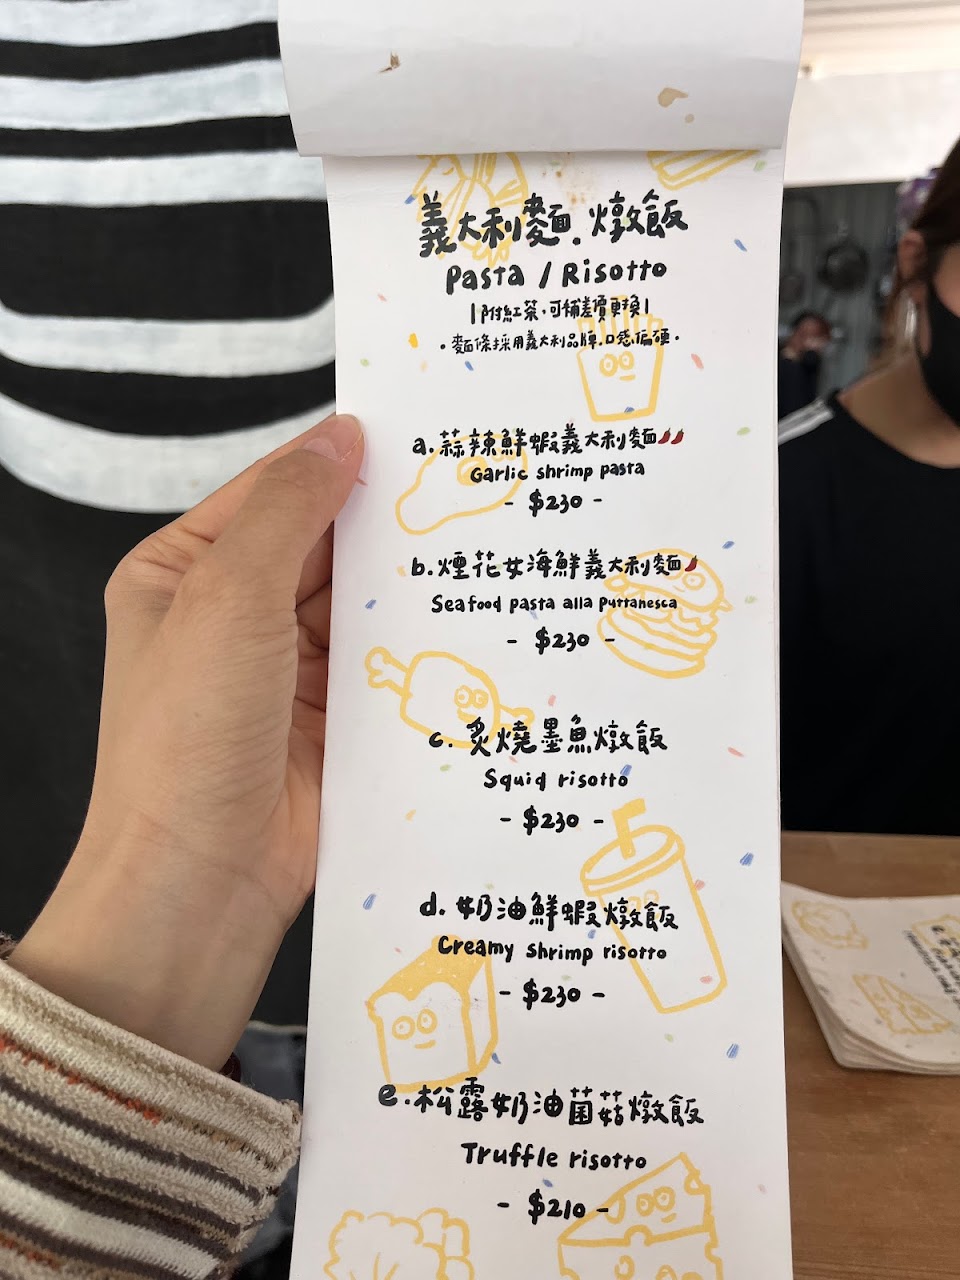 義大利麵.燉飯
Pasta / Risotto
|附紅茶,可補差價更換|
·麵條採用義大利品牌.口感偏硬·
a.蒜辣鮮蝦義大利麵🌶🌶
Garlic shrimp pasta
- $230 -
b.煙花女海鮮義大利麵🌶
Seafood pasta alla puttanesca
- $230 -
c.炙燒墨魚燉飯
Squid risotto
- $230 -
d.奶油鮮蝦燉飯
Creamy shrimp risotto
- $230 -
e.松露奶油菌菇燉飯
Truffle risotto
- $210 -